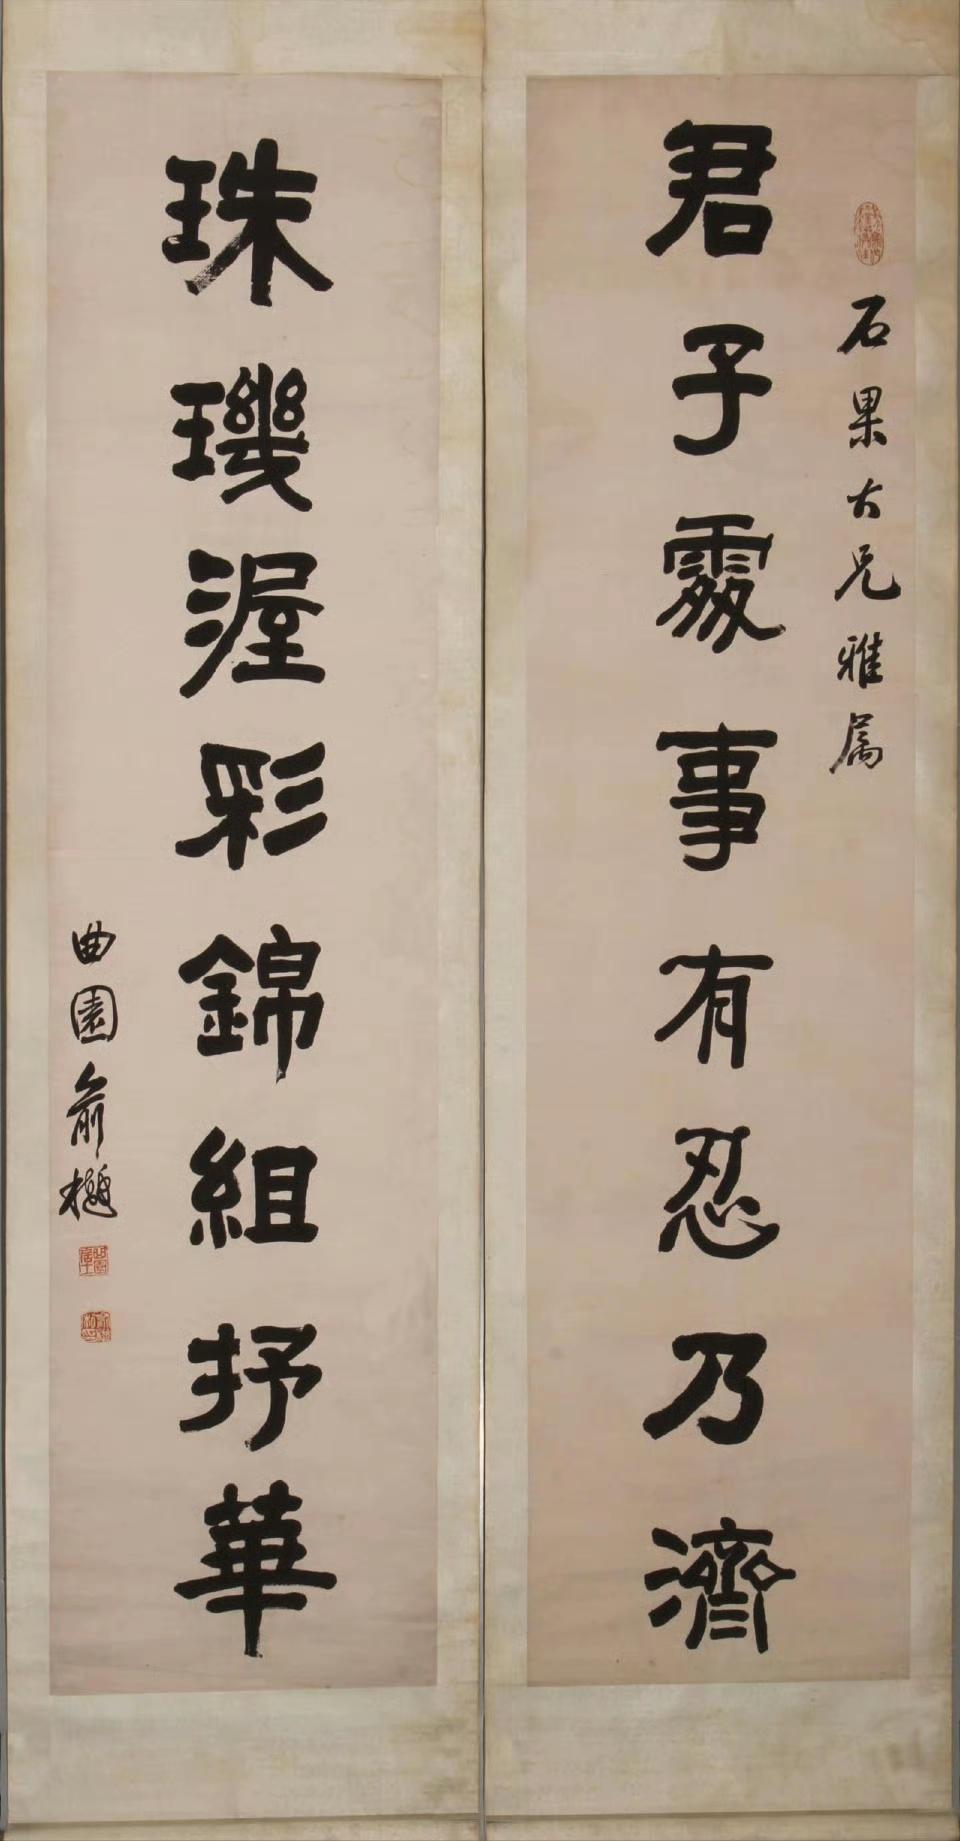 石果大兄雅属
君子處事有忍乃濟
珠璣渥彩錦組抒華
曲園俞樾